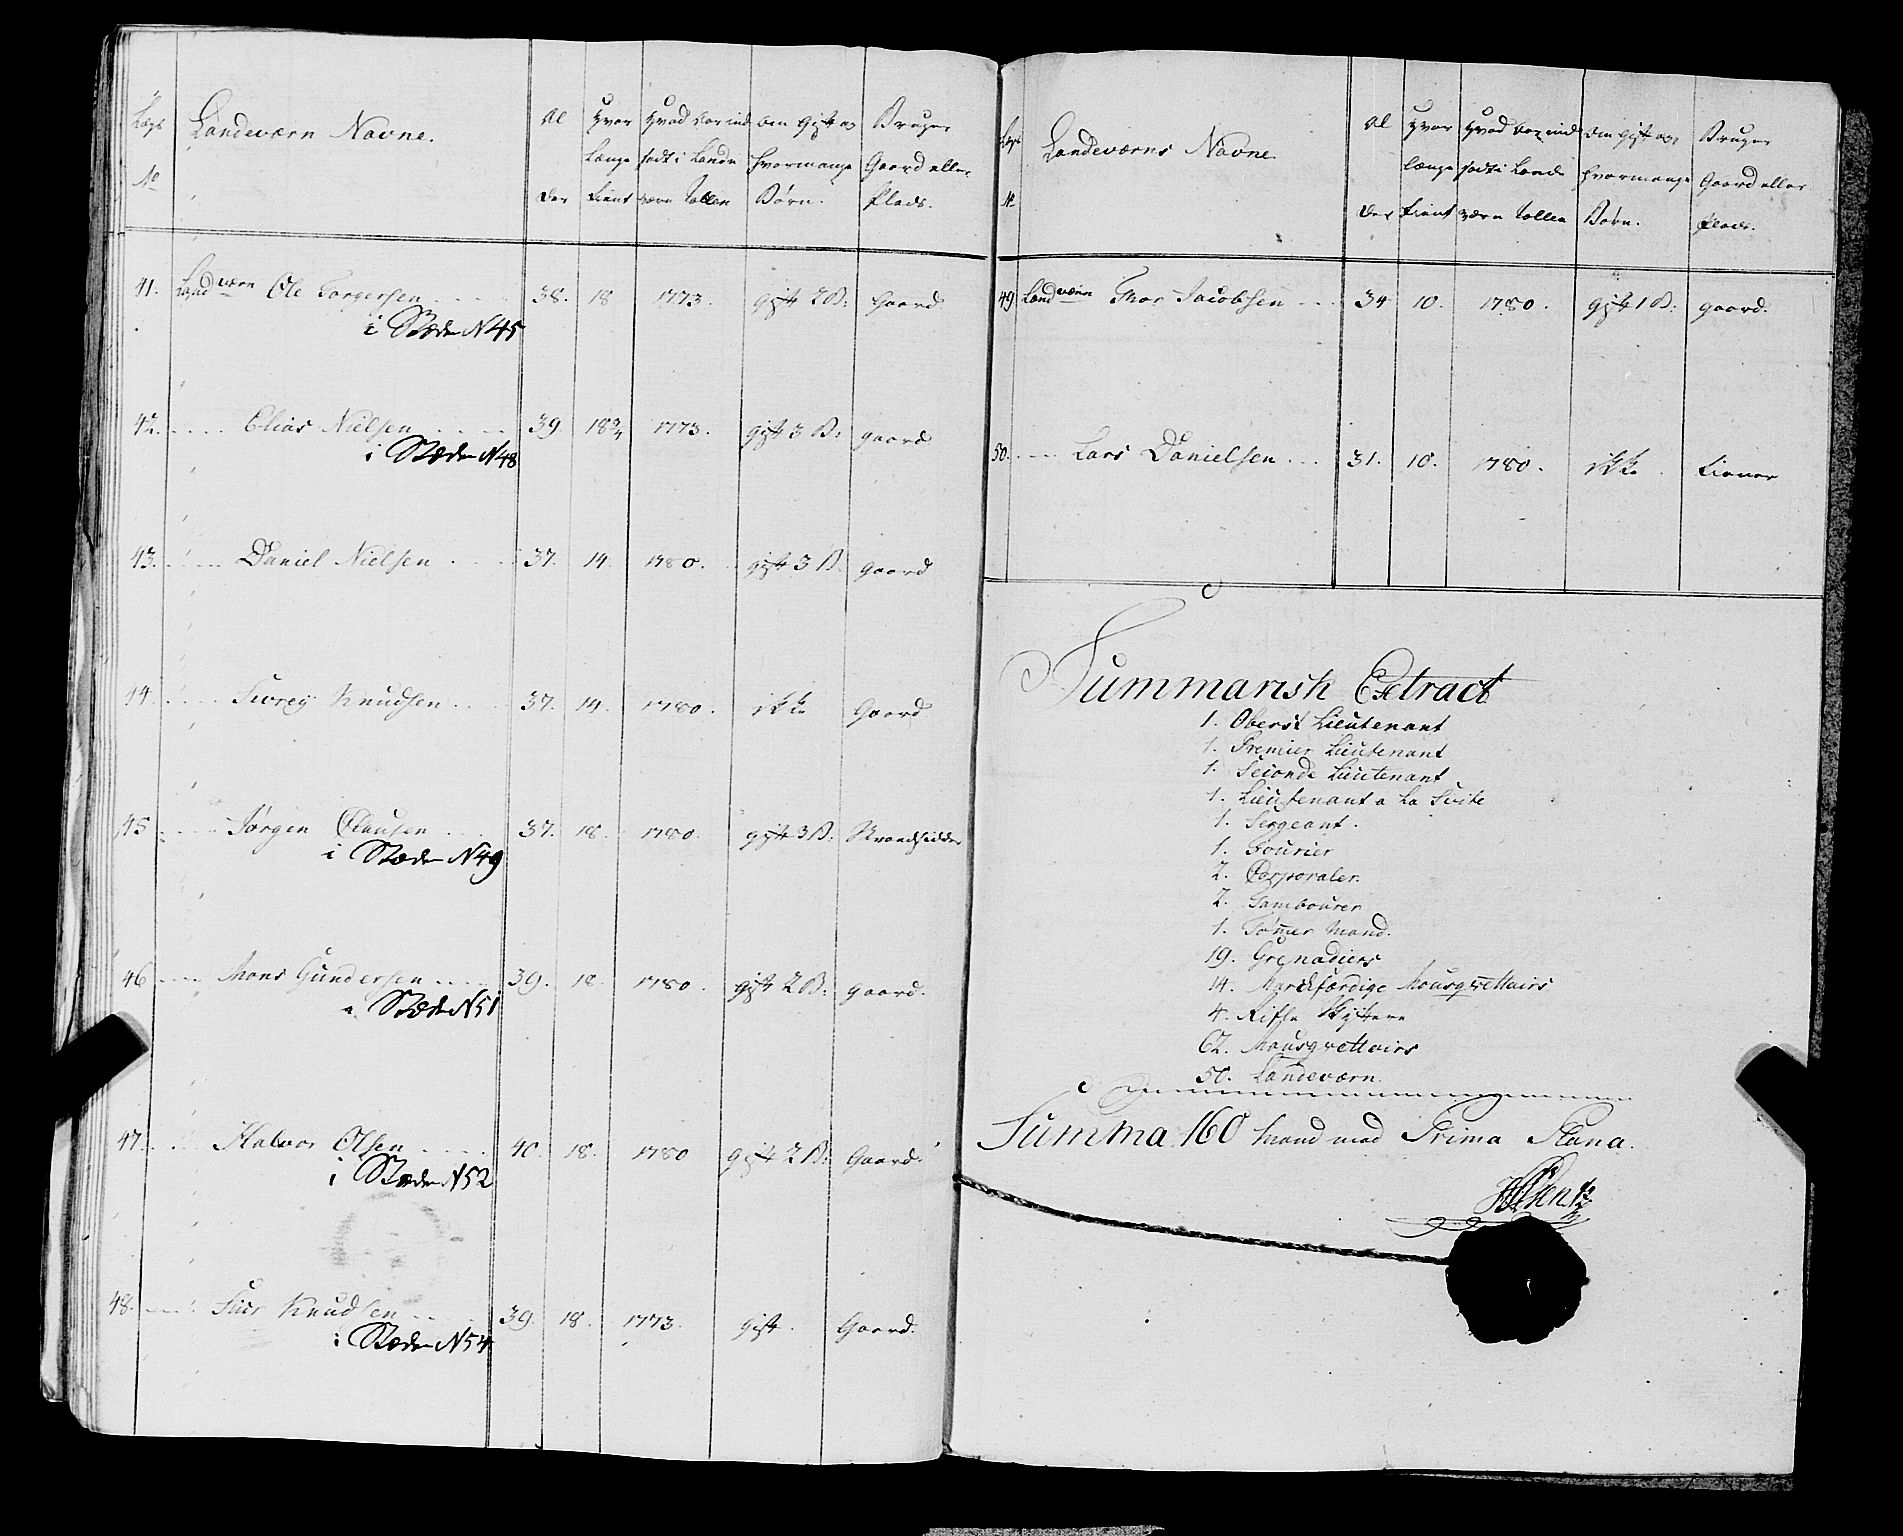 Lægs Landeværn Navne. Al Hvor Hvad Aar ind Om gift og Bruger
længe sadt i Lande hvormange Gaard eller
No der tient værn Rollen Børn. Plads.
41. Landværn Ole Torgersen 38. 18 1773. gift 2 B: Gaard
i Stæden N 45
42. Elias Nielsen 39 18¾ 1773. gift 3 B: gaard
i Stæden N 48
43. Daniel Nielsen 37. 14. 1780. gift 3 B. gaard
44. Knudsen 37. 14. 1780. ikke Gaard
45 Jørgen Clausen 37. 18. 1780. gift 3 B: Strandsidder
i Stæden N 49
46 Mons Gundersen 39. 18. 1780. gift 2 B: gaard.
i Stæden N 51
47. Halvor Olsen 40. 18. 1780 gift 2 B: Gaard.
i Stæden N 52
48. Siver Knudsen 39. 18. 1773. gift. Gaard.
i Stæden N 54
Lægs Landeværns Navne Al Hvor Hvad Aar ind Om gift og Bruger
længe sadt i Lande hvormange Gaard eller
No der tient værn Rollen Børn. Plads.
49. Landværn Thor Jacobsen 34 10. 1780. gift 1 B: gaard.
50. Lars Danielsen 31. 10. 1780. ikke tiener
Summarisk Extract
1. Oberst Lieutenant
1. Premier Lieutenant
1. Seconde Lieutenant
1. Lieutenant a la Suite
1. Sergeant.
1. Fourier
2. Corporaler
2. Tambourer
1. Tømer Mand.
19. Grenadiers
14. Marckfærdige Mousqvettairs
4. Rifle Skyttere
62. Mousqvettairs
50. Landeværn.
Summa 160 Mand med Prima Plana.